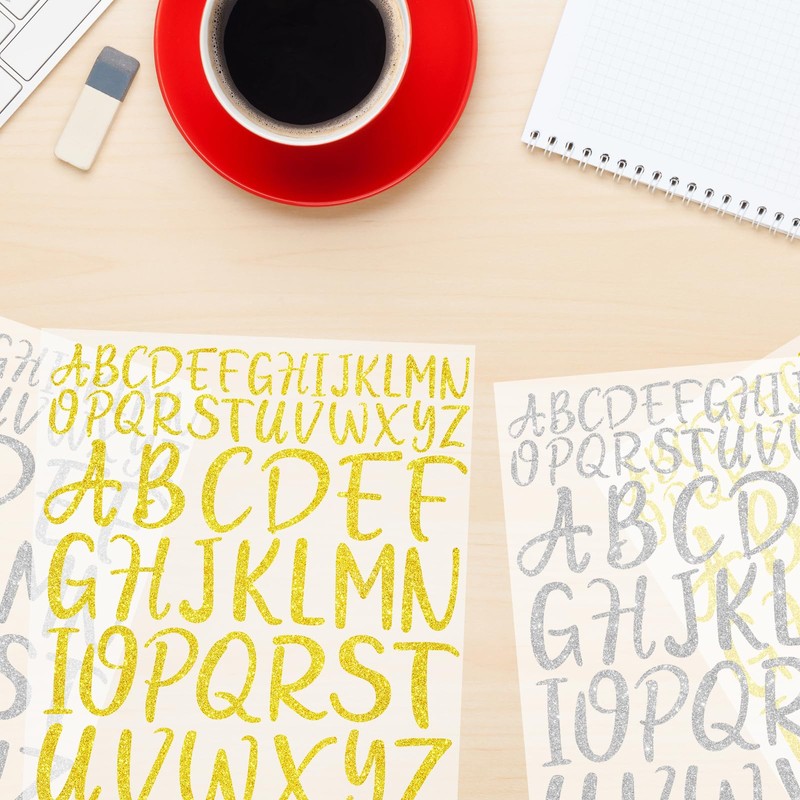 ABCDEFGHIJKLMN
OPQRSTUVWXYZ
ABCDEF
GHJKLMN
IOPQRST
UVWXYZ
ABCDEFGHI
OPQRSTUV
ABCD
GHJKL
IOPQR